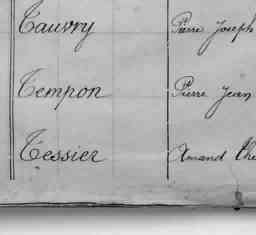 Tauvry Pierre Joseph
Tempon Pierre Jean
Tessier Amand